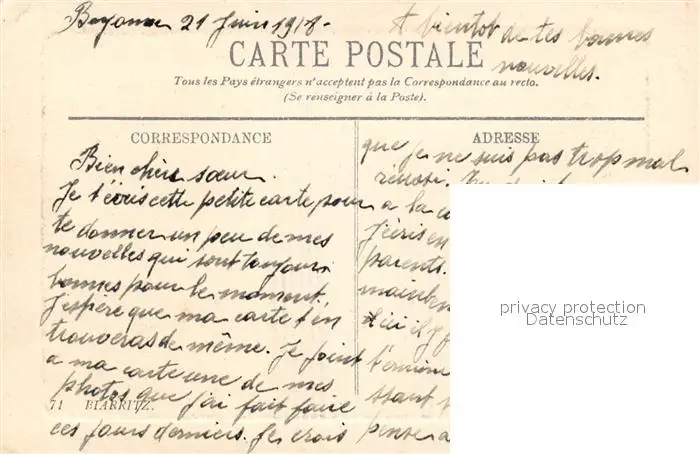 Bayonne 21 Juin 1918-
A bientot de tes bonnes
nouvelles.
CARTE POSTALE
Tous les Pays étrangers n'acceptent pas la Correspondance au recto.
(Se renseigner à la Poste).
CORRESPONDANCE
Bien chère sœur.
Je t'écris cette petite carte pour
te donner un peu de mes
nouvelles qui sont toujours
bonnes pour le moment.
J'espère que ma carte t'en
trouveras de même. Je joint
a ma carte une de mes
photos que j'ai fait faire
ces jours derniers. Je crois
71 BIARRITZ.
ADRESSE
que je ne suis pas trop mal
réussi.
a la
J'écris en
parents.
maint
d'ici il y
t'emm
pense a
privacy protection
Datenschutz